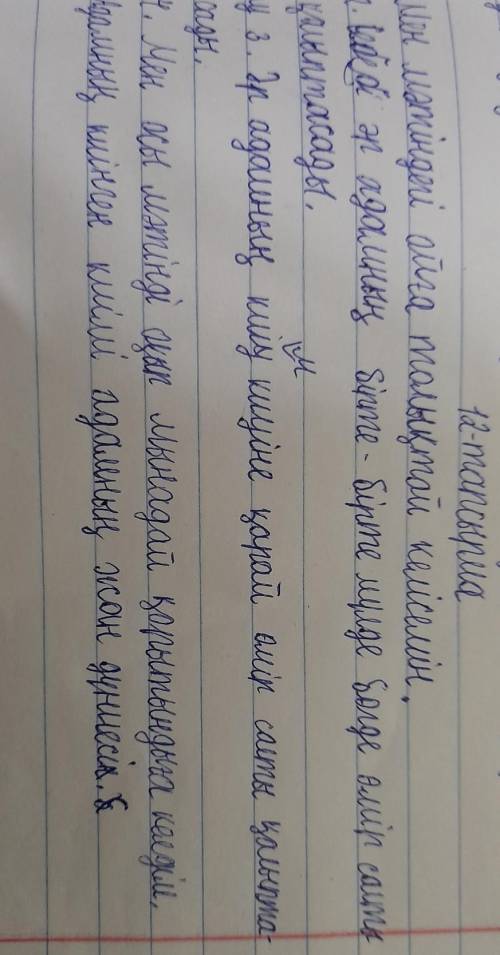 12-тапсырма
Мен мәтіндегі ойға толықтай келісемін.
әр адамның бірте-бірте мүлде бөлде өмір салты
қалыптасады.
3. Әр адамның киім киюіне қарай өмір салты қалыпта-
сады.
4. Мен осы мәтінді оқып мынадай қорытындыға келдім.
Адамның киінген киімі адамның жан дүниесін.